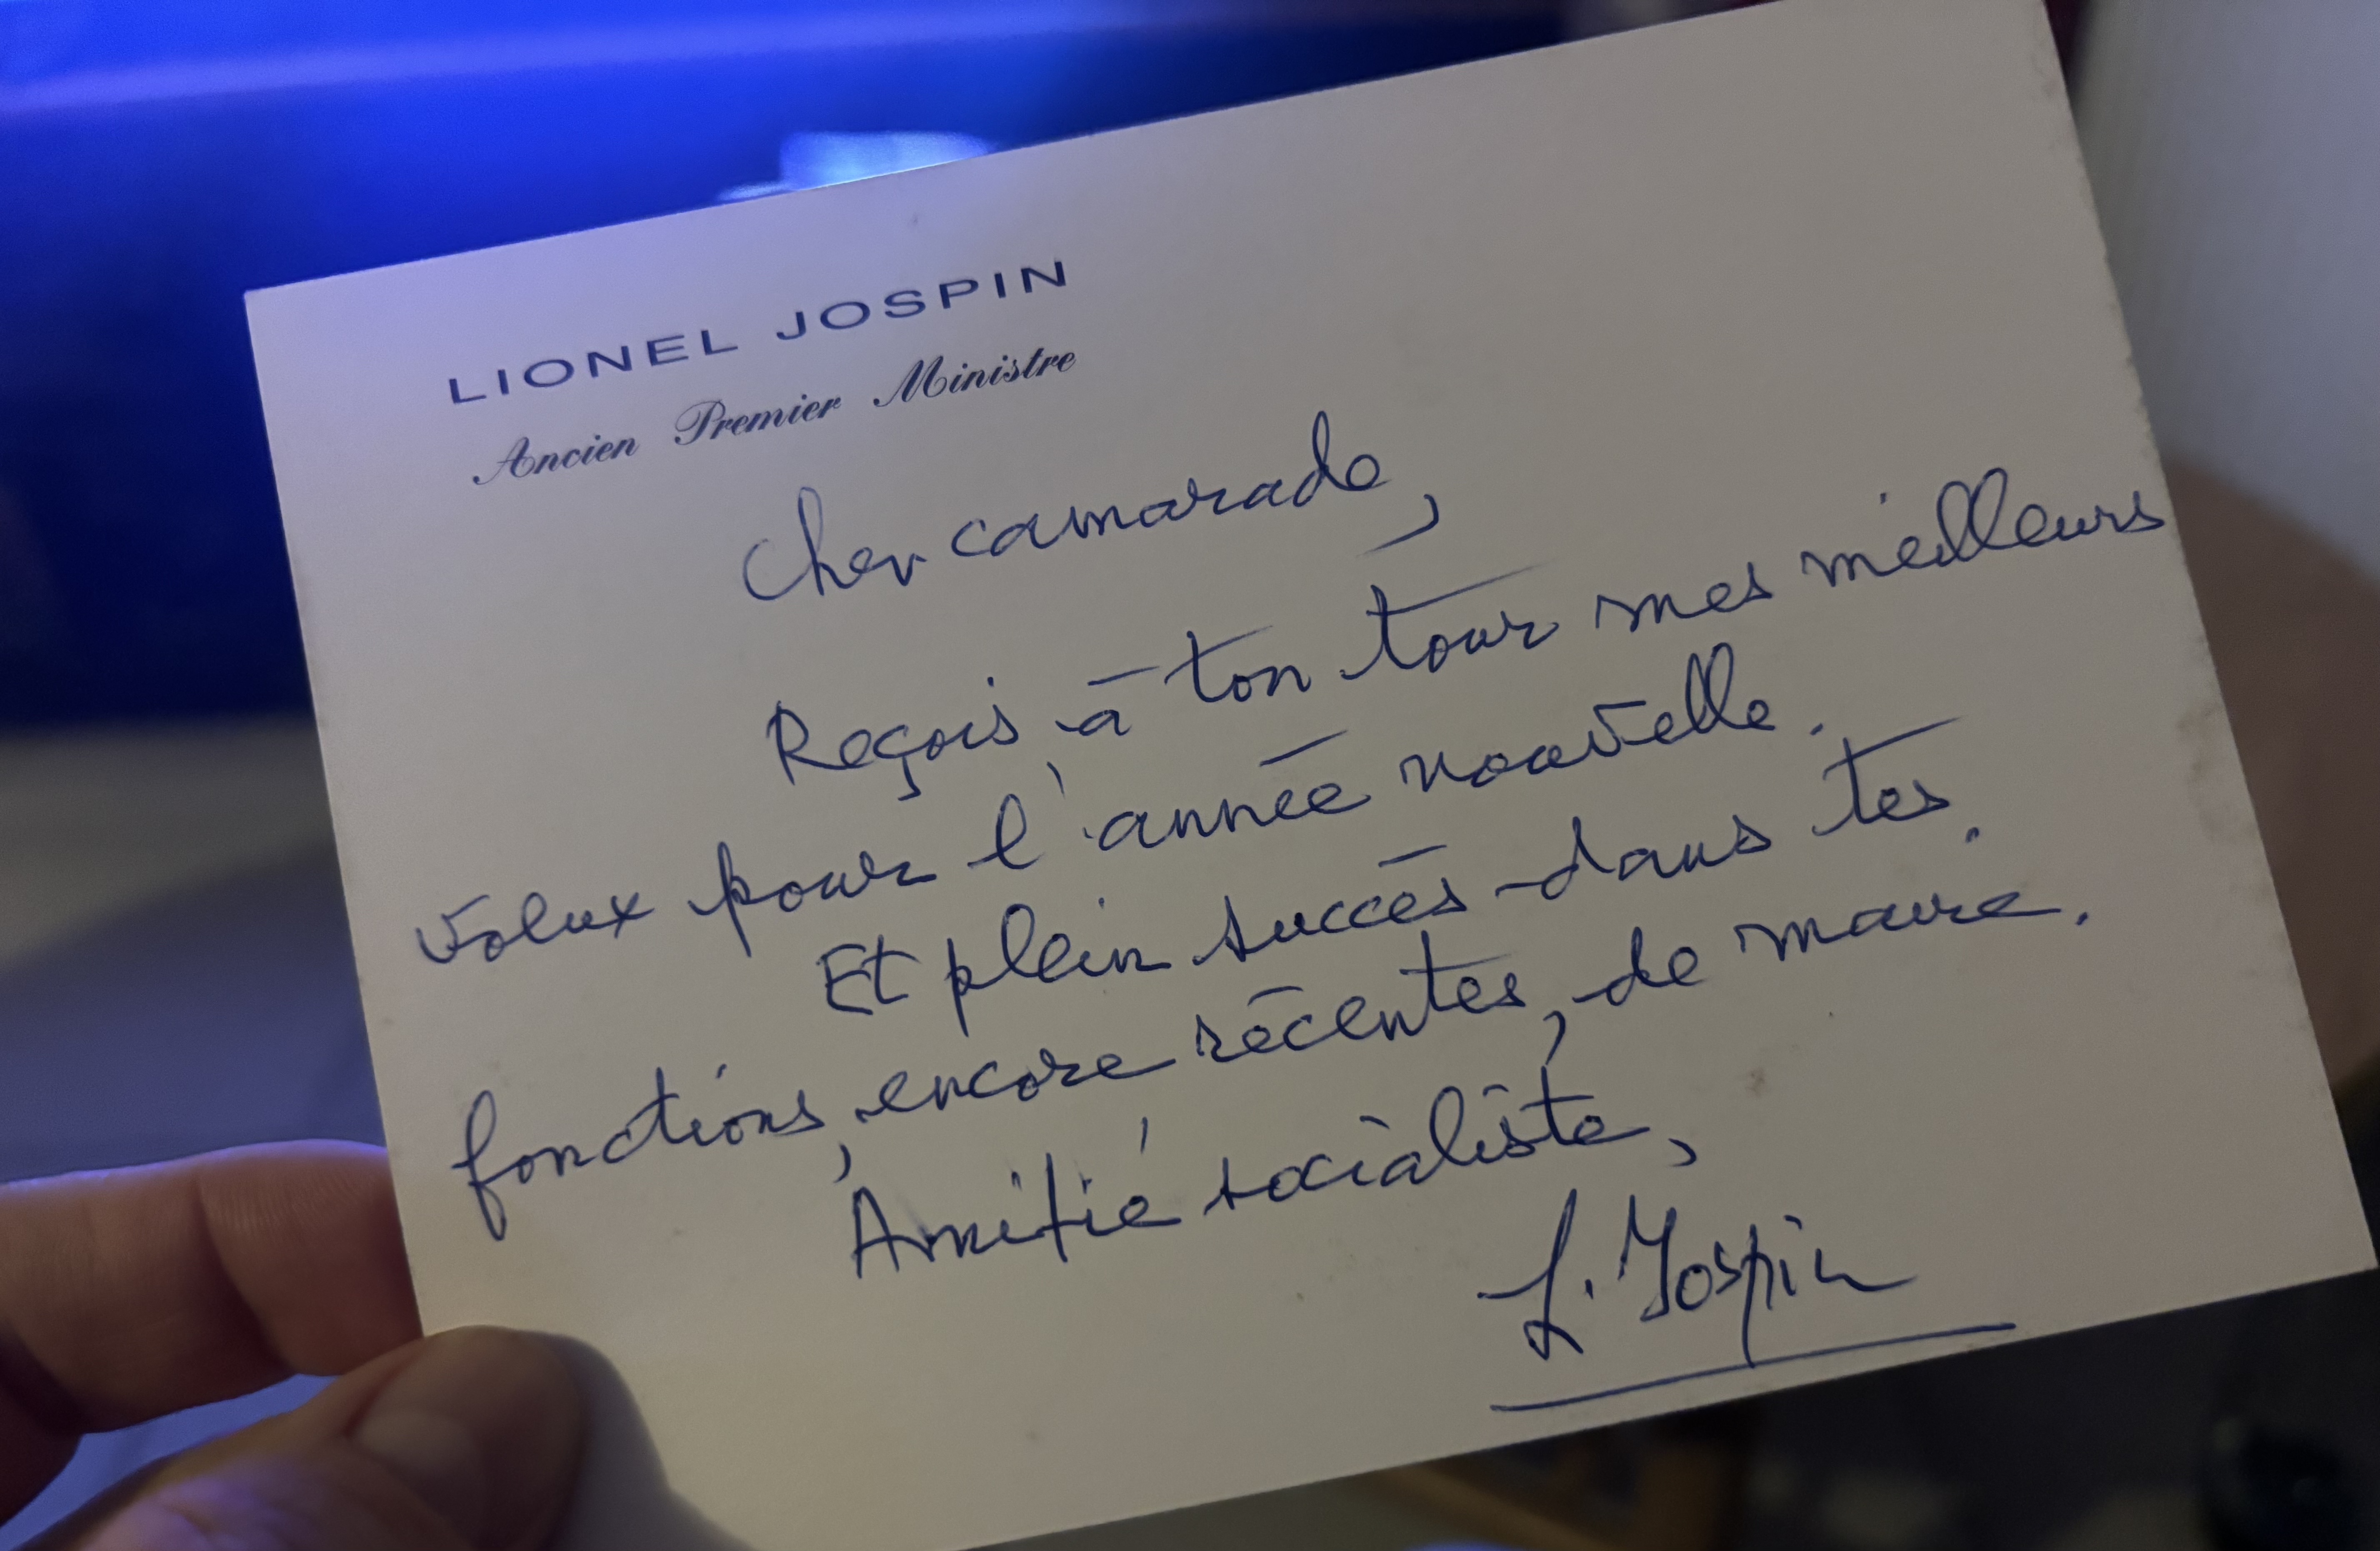 LIONEL JOSPIN
Ancien Premier Ministre
Cher camarade,
Reçois à ton tour mes meilleurs
vœux pour l'année nouvelle.
Et plein succès dans tes
fonctions, encore récentes, de maire.
Amitié socialiste,
L. Jospin